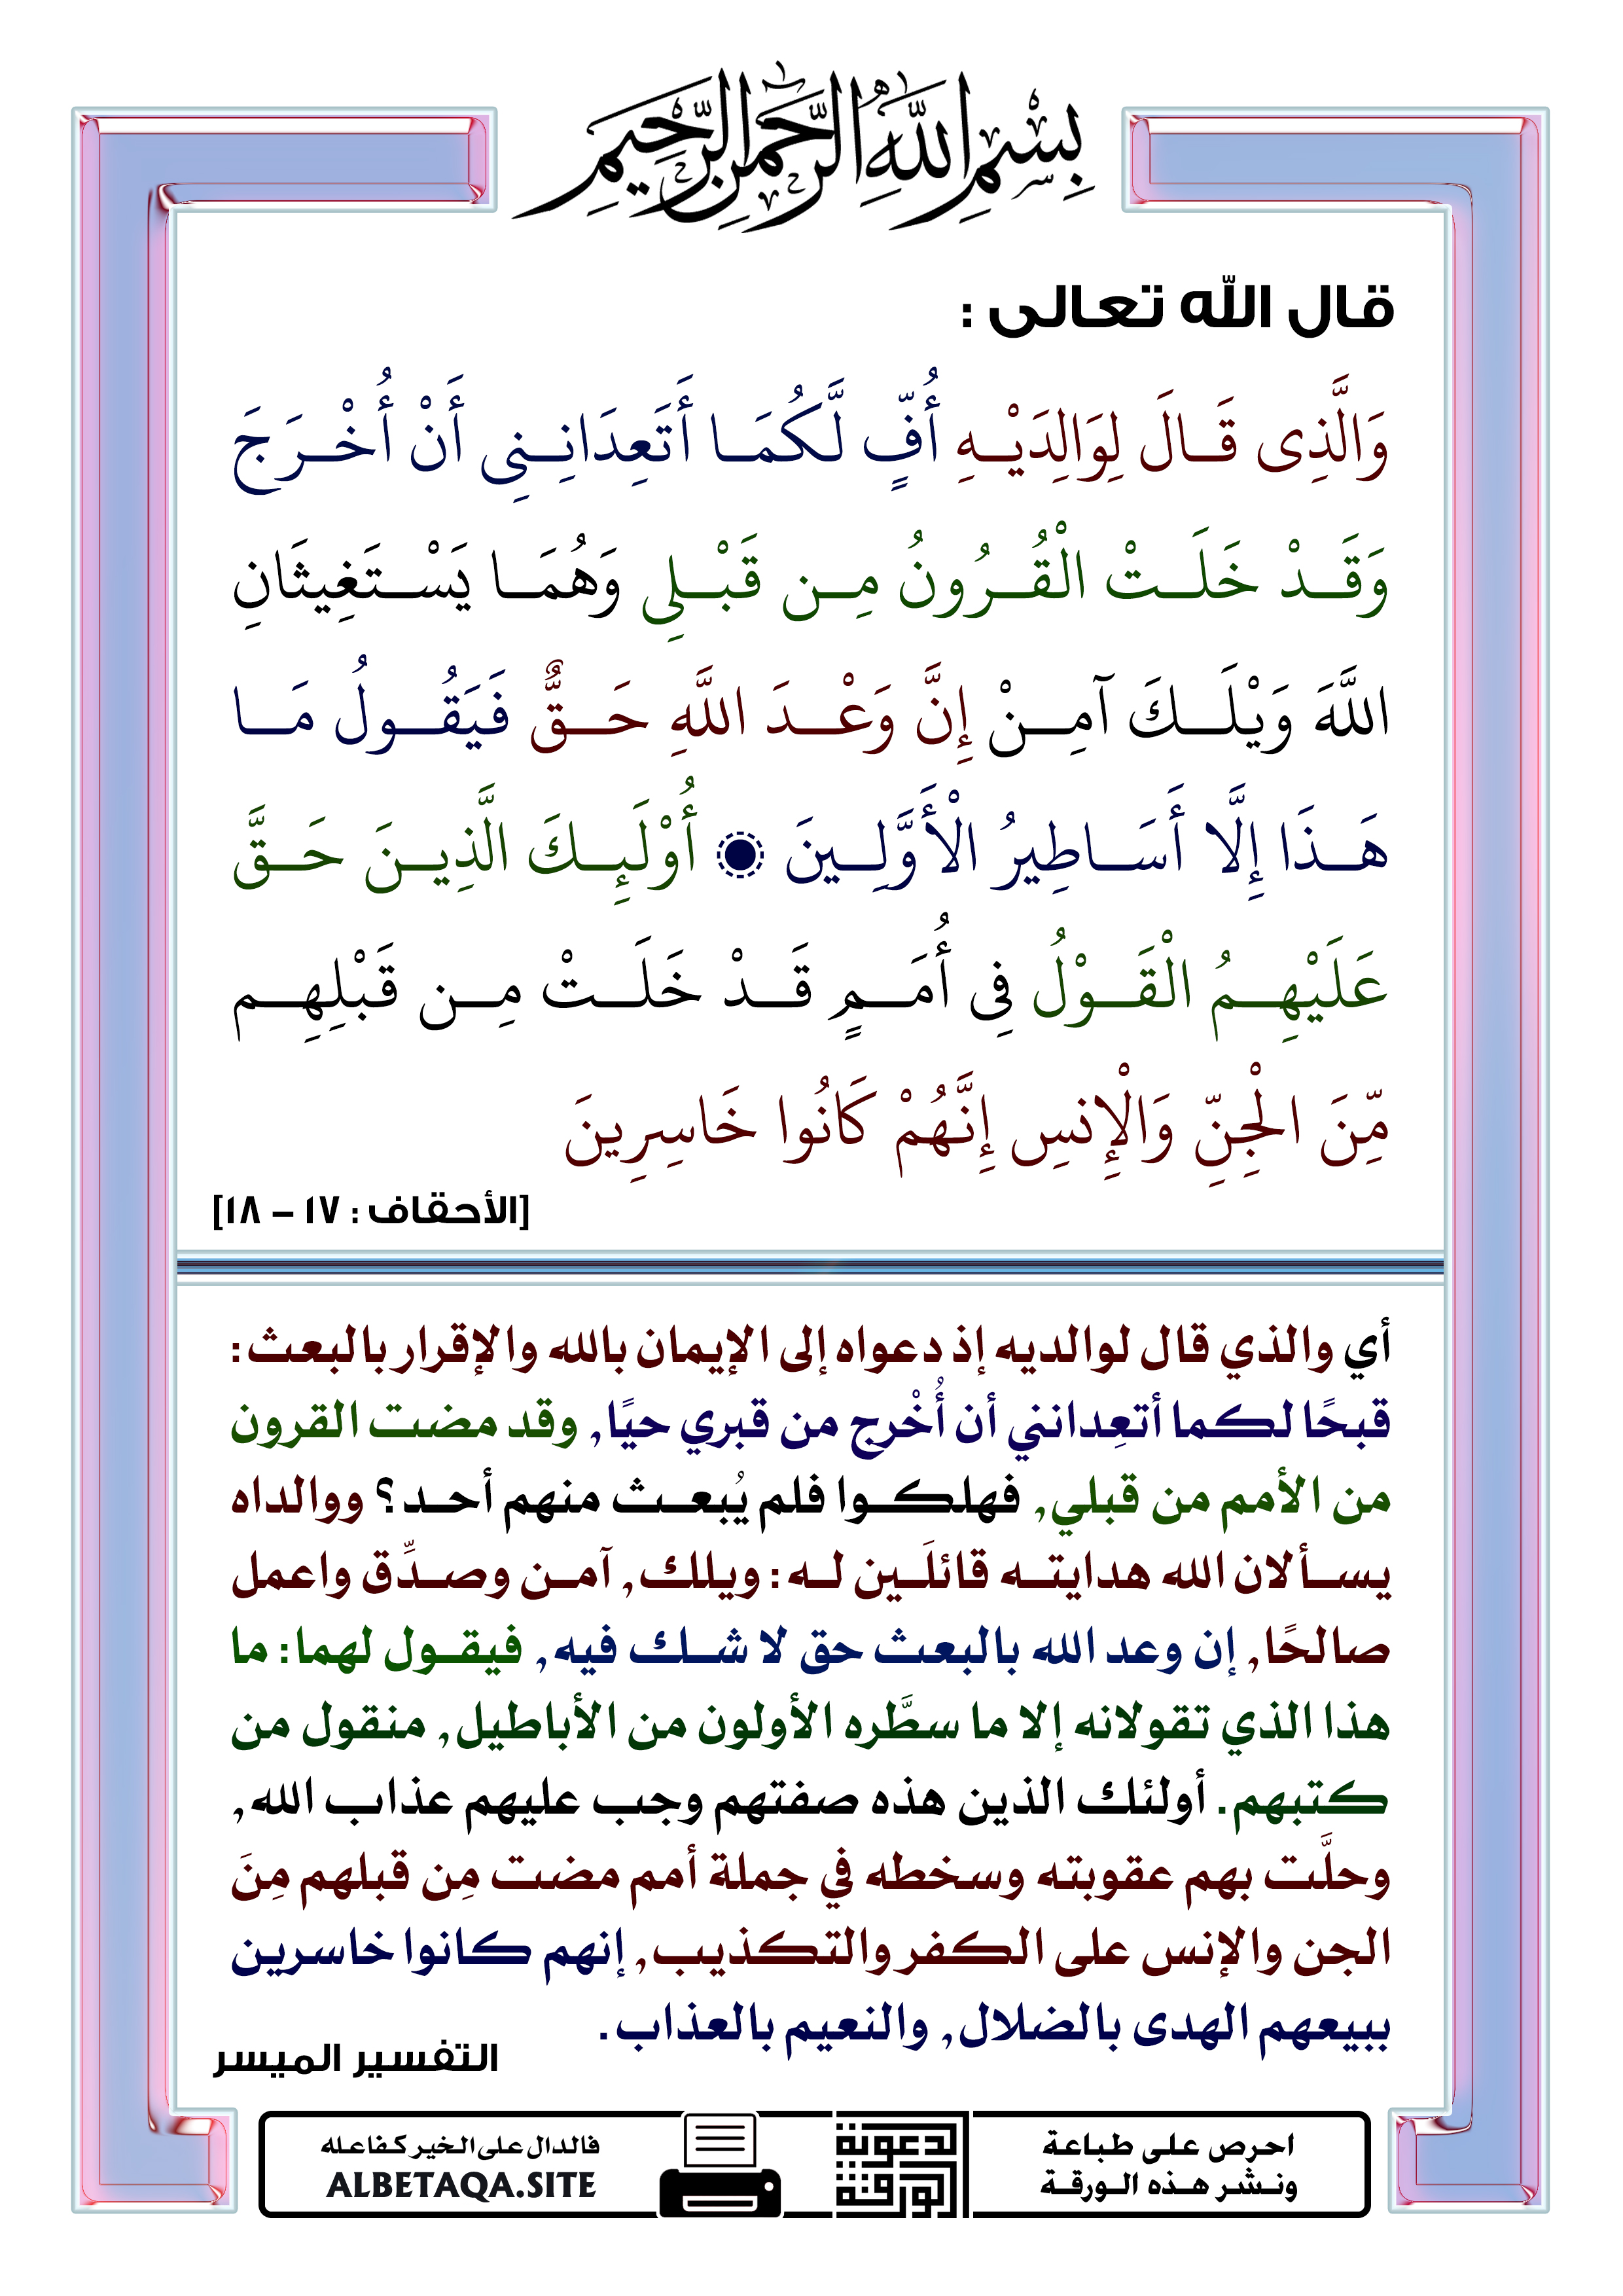 بِسْمِ اللَّهِ الرَّحْمَنِ الرَّحِيمِ
قال الله تعالى :
وَالَّذِى قَالَ لِوَالِدَيْهِ أُفٍّ لَّكُمَا أَتَعِدَانِنِى أَنْ أُخْرَجَ
وَقَدْ خَلَتْ الْقُرُونُ مِن قَبْلِى وَهُمَا يَسْتَغِيثَانِ
اللَّهَ وَيْلَكَ آمِنْ إِنَّ وَعْدَ اللَّهِ حَقٌّ فَيَقُولُ مَا
هَذَا إِلَّا أَسَاطِيرُ الْأَوَّلِينَ ۞ أُوْلَئِكَ الَّذِينَ حَقَّ
عَلَيْهِمُ الْقَوْلُ فِى أُمَمٍ قَدْ خَلَتْ مِن قَبْلِهِم
مِّنَ الْجِنِّ وَالْإِنسِ إِنَّهُمْ كَانُوا خَاسِرِينَ
[الأحقاف : ١٧ – ١٨]
أي والذي قال لوالديه إذ دعواه إلى الإيمان بالله والإقرار بالبعث :
قبحًا لكما أتعِدانني أن أُخْرج من قبري حيًا, وقد مضت القرون
من الأمم من قبلي, فهلكوا فلم يُبعث منهم أحد ؟ ووالداه
يسألان الله هدايته قائلَين له : ويلك, آمن وصدِّق واعمل
صالحًا, إن وعد الله بالبعث حق لا شك فيه, فيقول لهما : ما
هذا الذي تقولانه إلا ما سطَّره الأولون من الأباطيل, منقول من
كتبهم. أولئك الذين هذه صفتهم وجب عليهم عذاب الله,
وحلَّت بهم عقوبته وسخطه في جملة أمم مضت مِن قبلهم مِنَ
الجن والإنس على الكفر والتكذيب, إنهم كانوا خاسرين
ببيعهم الهدى بالضلال, والنعيم بالعذاب.
التفسير الميسر
احرص على طباعة
ونشر هذه الورقة
الورقة الدعوية
فالدال على الخير كفاعله
ALBETAQA.SITE